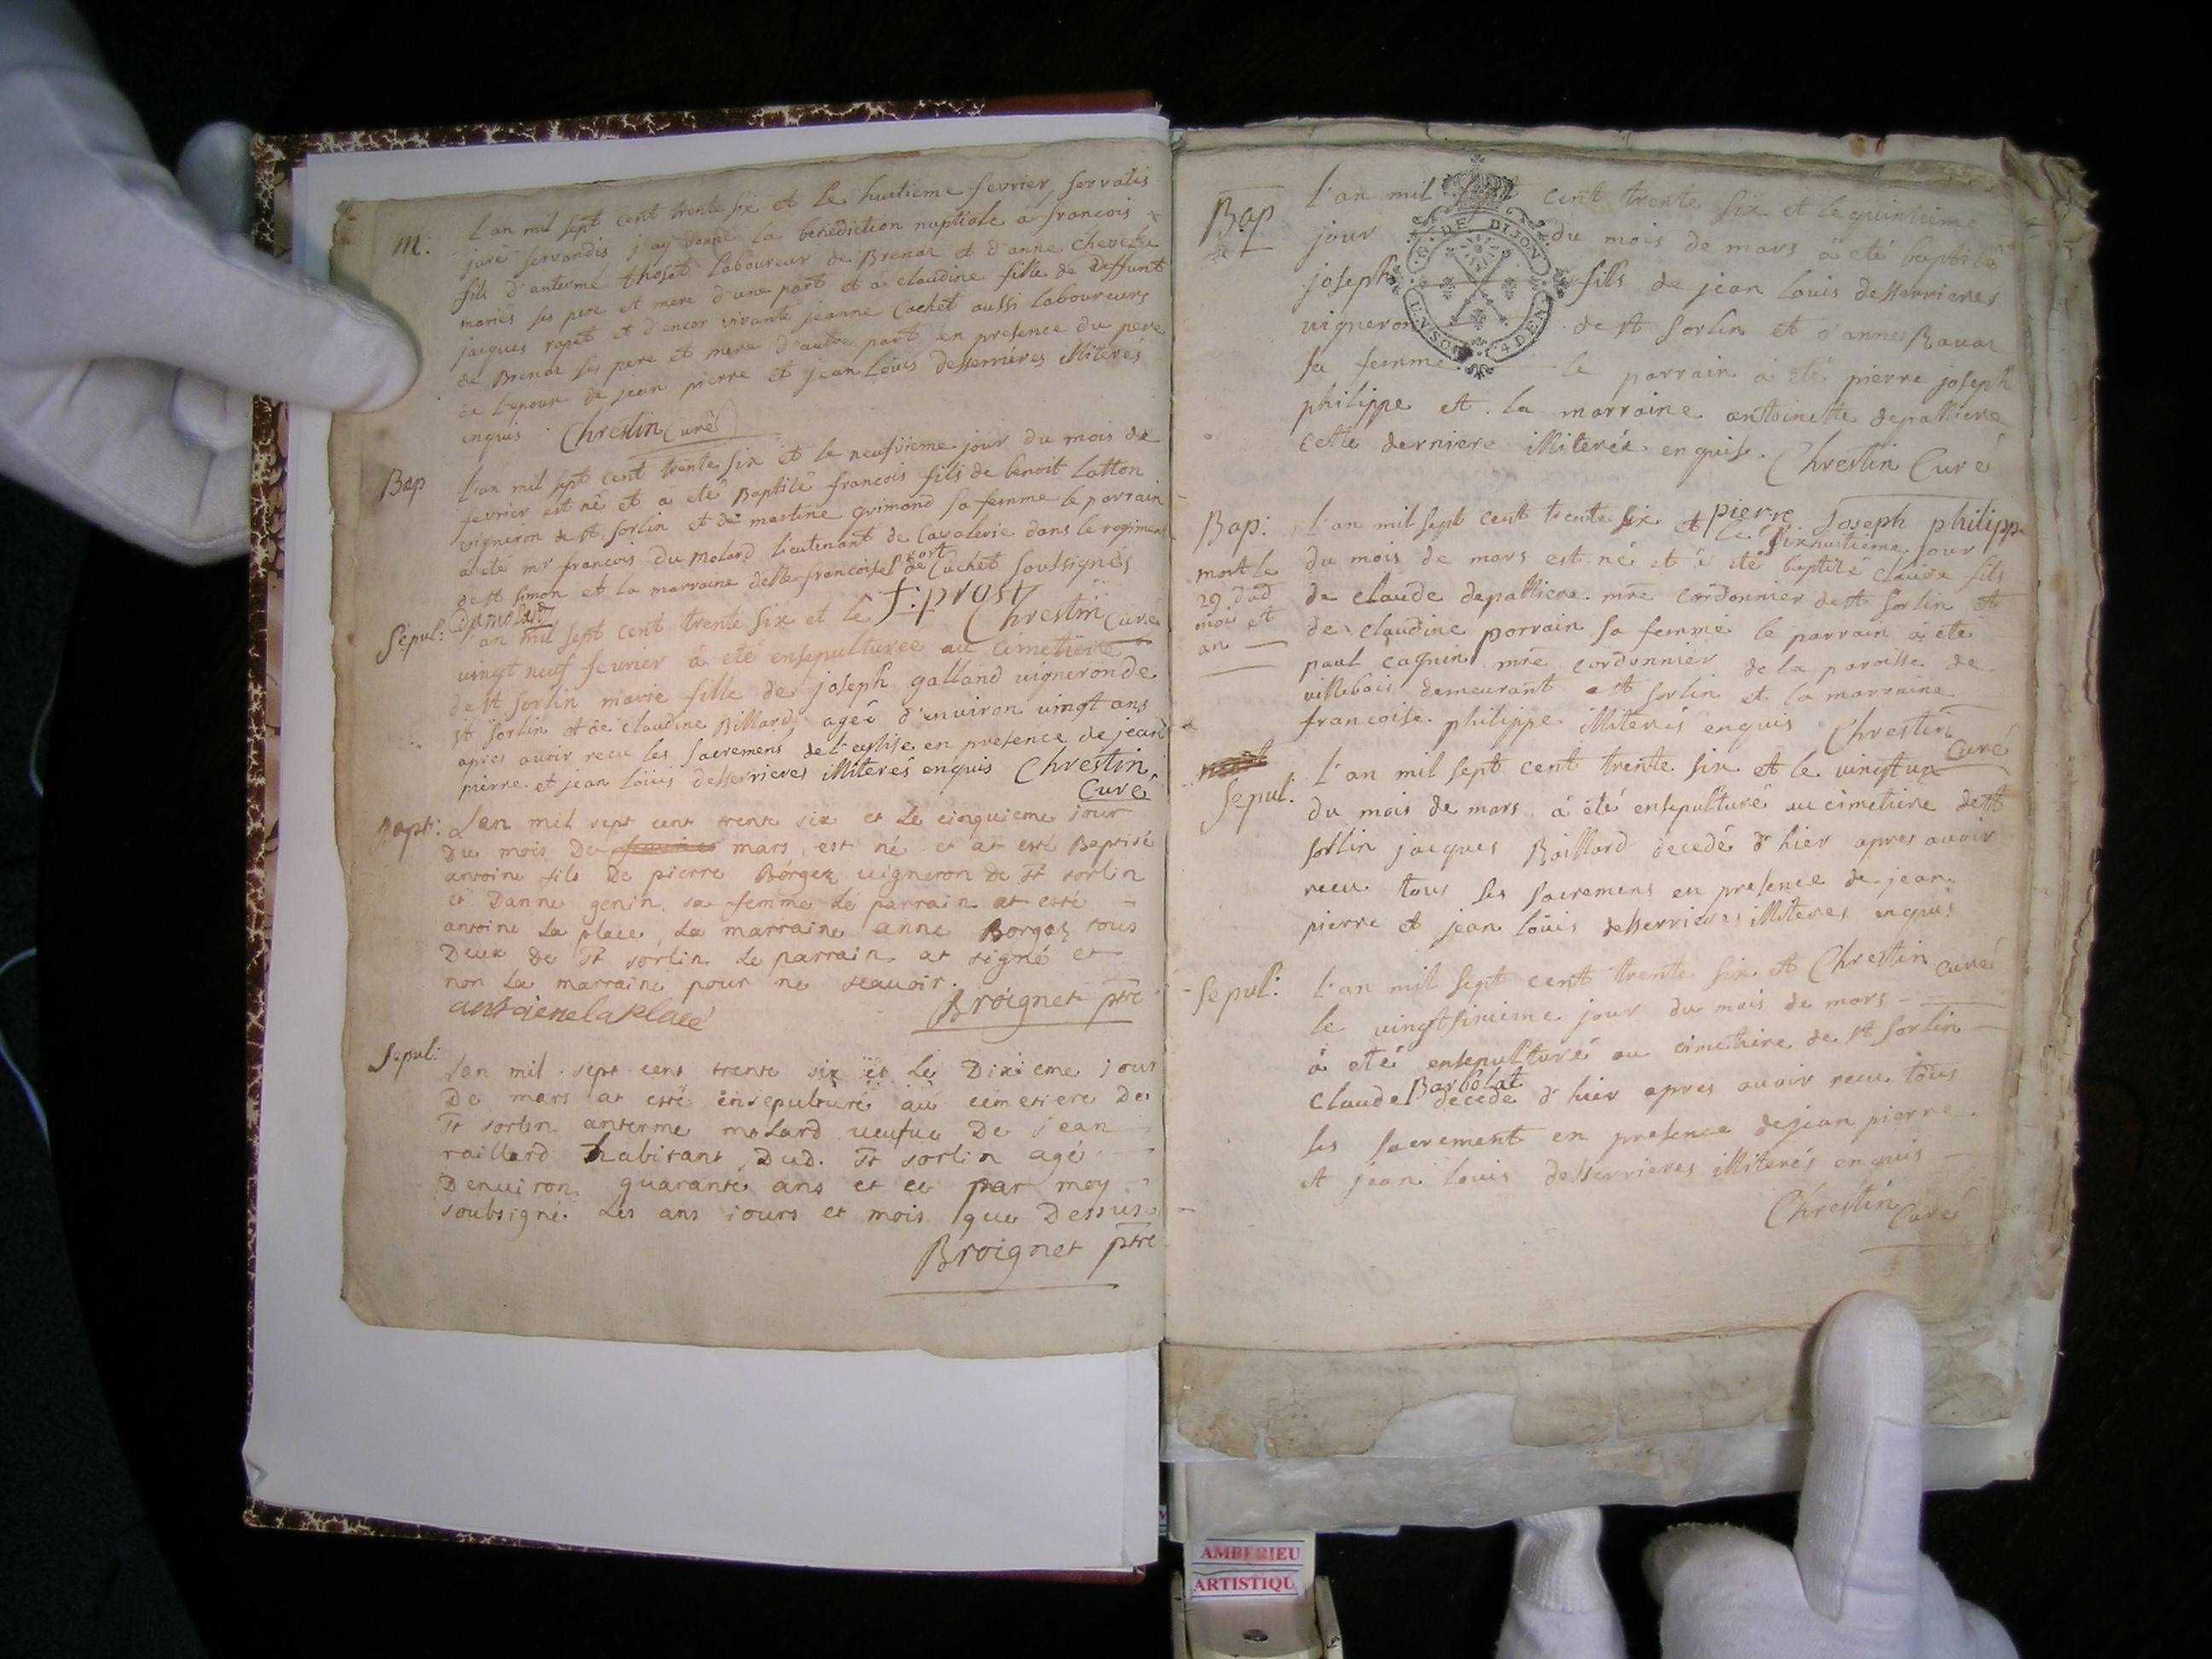 M:
L'an mil sept cent trente six et le huitieme fevrier, servatis
jure servandis j'ay donné la benediction nuptiale á francois
fils d'anterme thoset laboureur de Brenaz et d'anne chevelu
mariés ses pere et mere d'une part et á claudine fille de deffunt
jacques ropet et d'encor vivante jeanne Cochet aussi laboureurs
de Brenaz ses pere et mere d'autre part en presence du pere
de l'epoux de jean pierre et jean Loüis desserrieres illiterés
enquis Chrestin Curé
Bap
L'an mil sept cent trente six et le neufvieme jour du mois de
fevrier est né et á eté Baptisé francois fils de benoit Latton
vigneron de st sorlin et de martine grimond sa femme le parrain
a eté mr francois Du Molard lieutenant de Cavalerie dans le regiment
de st simon et la marraine delle francoise prost de Cuchet soussignés
Dumolard f: prost Chrestin Curé
Sepul:
L'an mil sept cent trente six et le
vingt neuf fevrier á eté ensepulturee au cimetiere
de st sorlin marie fille de joseph galland vigneron de
st sorlin et de claudine Billard, ageé d'environ vingt ans
apres avoir recu les sacremens de l'eglise en presence de jean
pierre et jean loüis desserrieres illiterés enquis Chrestin
Curé
Bapt:
Lan mil sept cent trente six et Le cinquieme jour
Du mois De mars, est né et at esté Baptisé
antoine fils De pierre Börgez vigneron De st sorlin
et Danne genin sa femme Le parrain at esté
antoine La place, La marraine anne Borgez tous
Deux De st sorlin Le parrain at signé et
non La marraine pour ne scavoir.
antoiene la place Broignet ptre
Sepul:
Lan mil sept cent trente six et Le Dixieme jour
De mars at esté ensepulturé au cimetiere De
st sorlin anterme molard veufve De jean
raillard habitant Dud. st sorlin agé
Denviron quarante ans et ce par moy
soubsigné Les ans jours et mois que Dessus
Broignet ptre
Bap
L'an mil sept cent trente six et le quinzieme
jour du mois de mars á eté baptisé
joseph fils de jean loüis desserrieres
vigneron de st sorlin et d'anne Ravaz
sa femme le parrain a eté pierre joseph
philippe et la marraine antoinette depalliere
cette derniere illiterée enquise. Chrestin Curé
G. DE DIJON
4 DEN
pierre Joseph philippe
Bap:
L'an mil sept cent trente six et le dixhuitieme jour
mort le
29 dud
mois et
an
du mois de mars est né et á eté baptisé claude fils
de claude depalliere mre cordonnier de st sorlin et
de claudine porrain sa femme le parrain á eté
paul cagnin mre cordonnier de la paroisse de
villebois demeurant a st sorlin et la marraine
francoise philippe illiterés enquis Chrestin
Curé
Sepul:
L'an mil sept cent trente six et le vingt un
du mois de mars á été ensepulturé au cimetiere de st
sorlin jacques Raillard decedé d'hier apres avoir
recu tous les sacremens en presence de jean
pierre et jean loüis desserrieres illiteres enquis
Chrestin curé
Sepul:
L'an mil sept cent trente six et
le vingtsixieme jour du mois de mars
á eté ensepulturé au cimetiere de st sorlin
claude Barbolat decedé d'hier apres avoir recu tous
les sacrement en presence de jean pierre
et jean louis desserrieres illiterés enquis
Chrestin Curé
AMBERIEU
ARTISTIQU